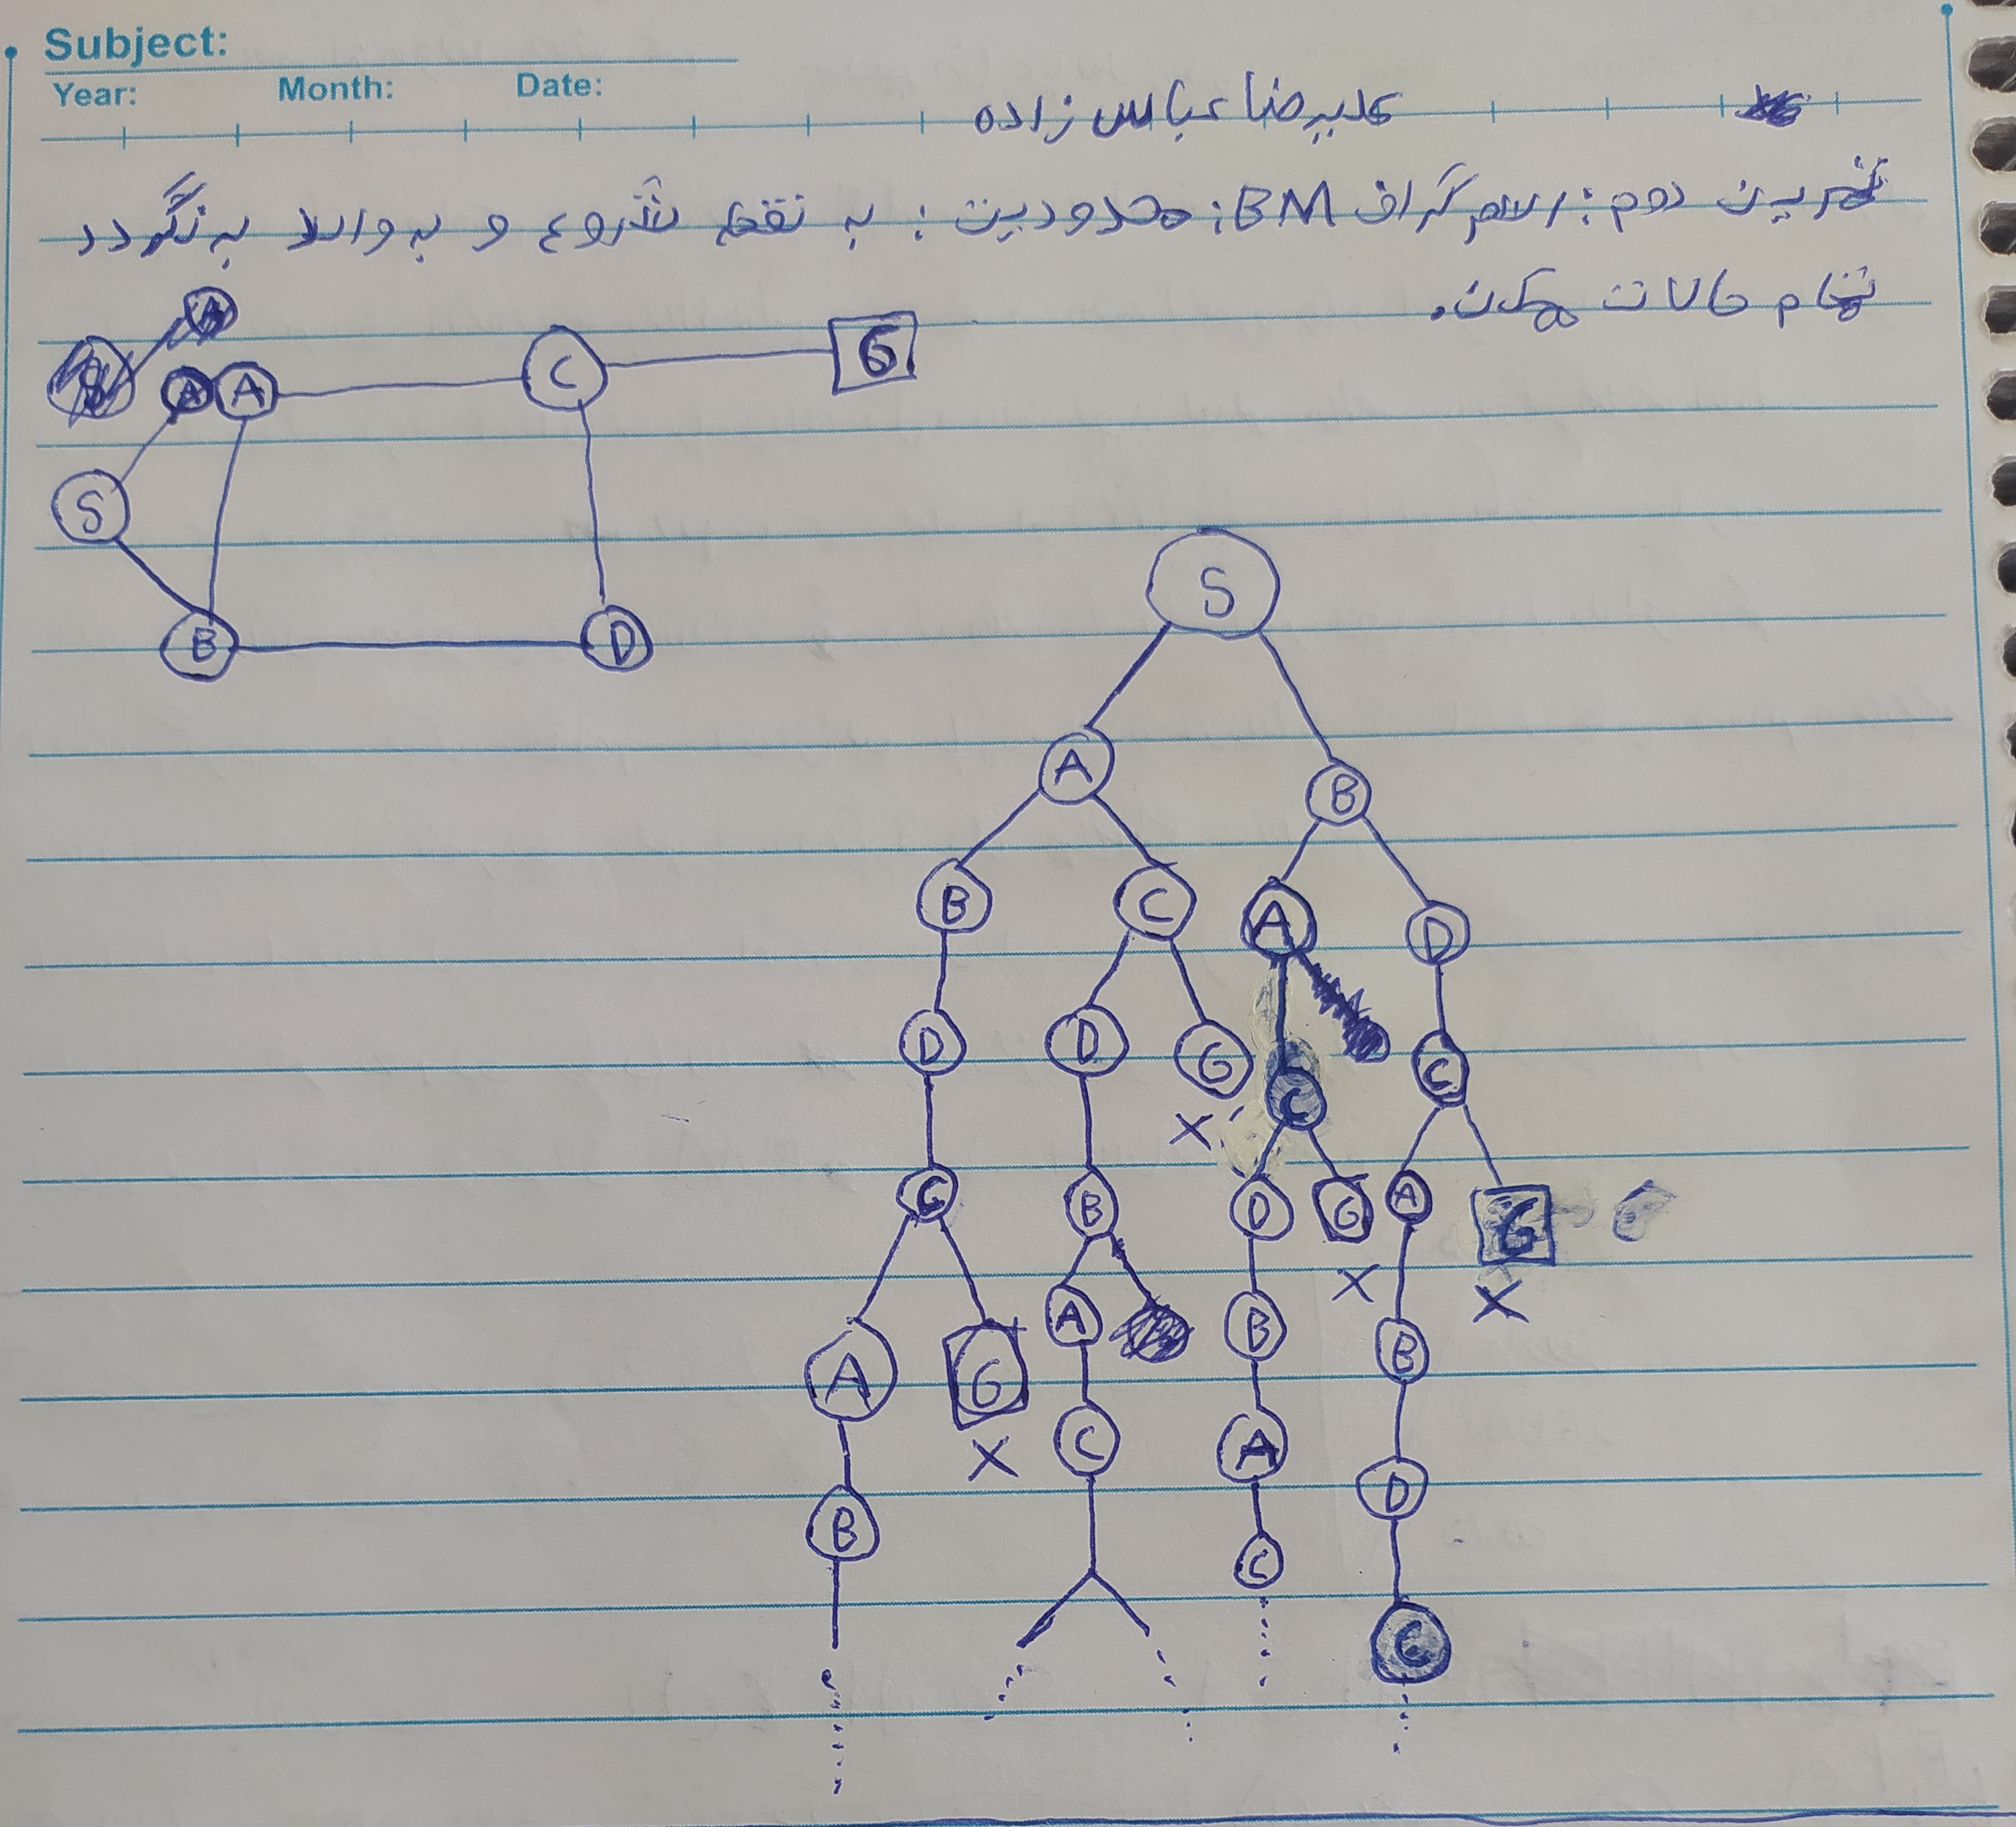 Subject:
Year: Month: Date:
علیرضا عباس زاده
تمرین دوم: رسم گراف BM: محدودیت: به نقطه شروع و به والد برنگردد
تمام حالات ممکن.
A A C G
S
B D
S
A B
B C A D
D D G C C
X
C B D G A G
X X
A G A B B
X
C A D
B C C